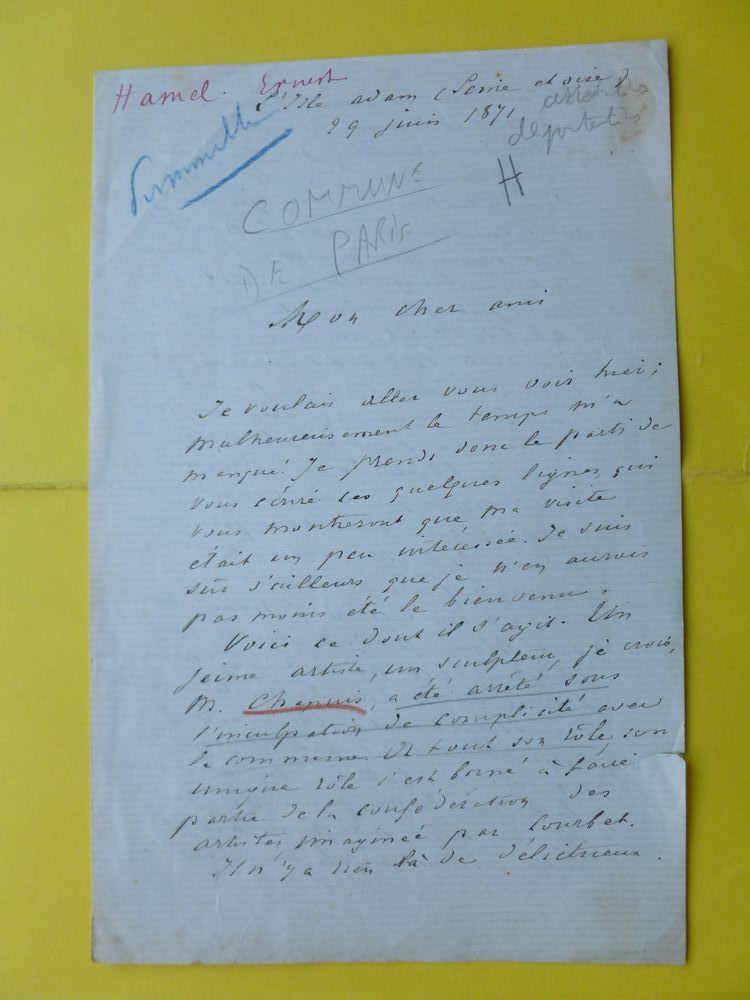 Hamel. Ernest
L'Isle adam (Seine et oise)
29 juin 1871
déportetés
COMMUNE
H
DE PARIS
Mon cher ami
Je voulais aller vous voir hier;
malheureusement le temps m'a
manqué. Je prends donc le parti de
vous écrire ces quelques lignes qui
vous montreront que ma visite
était un peu intéressée. Je suis
sûr d'ailleurs que je n'en aurois
pas moins été le bienvenu.
Voici ce dont il s'agit. Un
jeune artiste, un sculpteur, je crois,
M. Chapuis, a été arrêté sous
l'inculpation de complicité avec
la commune. Or tout son rôle son
unique rôle s'est borné à faire
partie de la confédération des
artistes imaginée par Courbet.
Il n'y a rien là de délictueux.